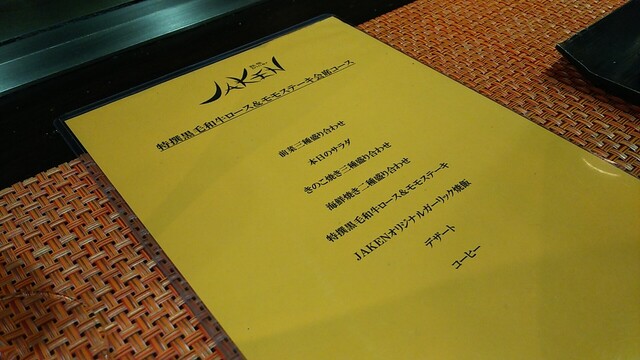 JAKEN
特撰黒毛和牛ロース&モモステーキ会席コース
前菜三種盛り合わせ
本日のサラダ
きのこ焼き三種盛り合わせ
海鮮焼き二種盛り合わせ
特撰黒毛和牛ロース&モモステーキ
JAKENオリジナルガーリック焼飯
デザート
コーヒー